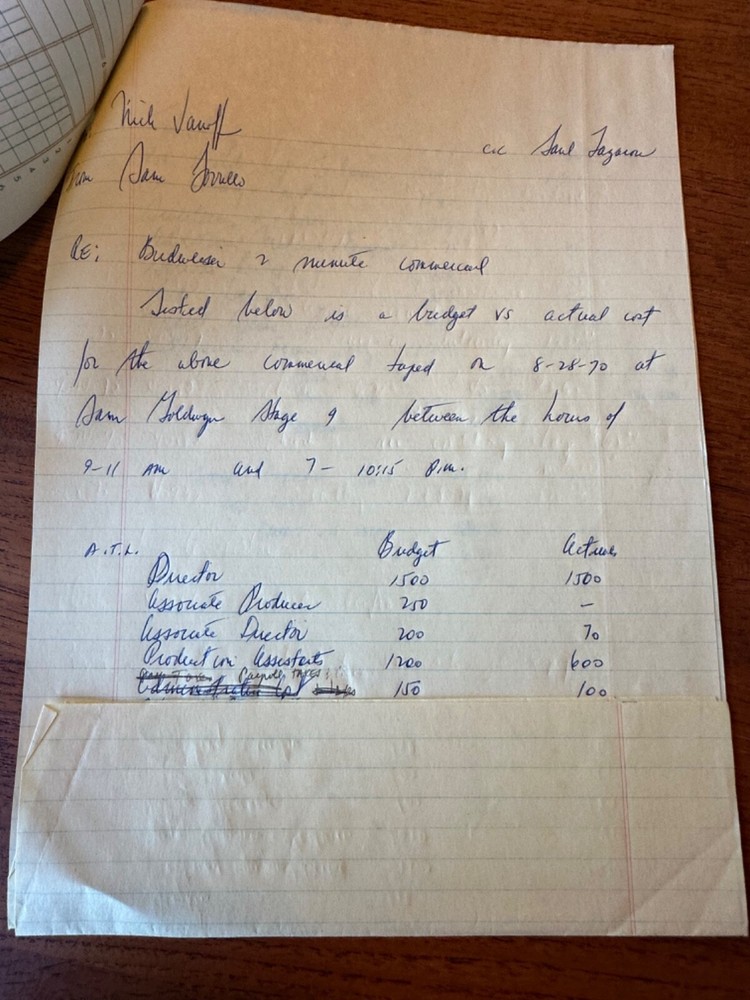 Nick Vanoff
From Sam
cc Saul
RE: Budweiser 2 minute commercial
Listed below is a budget vs actual cost
for the above commercial taped on 8-28-70 at
Sam Goldwyn Stage 9 between the hours of
9-11 AM and 7- 10:15 P.M.
A.T.L. Budget Actual
Director 1500 1500
Associate Producer 250 -
Associate Director 200 70
Production Assistants 1200 600
Payroll TAXES
150 100